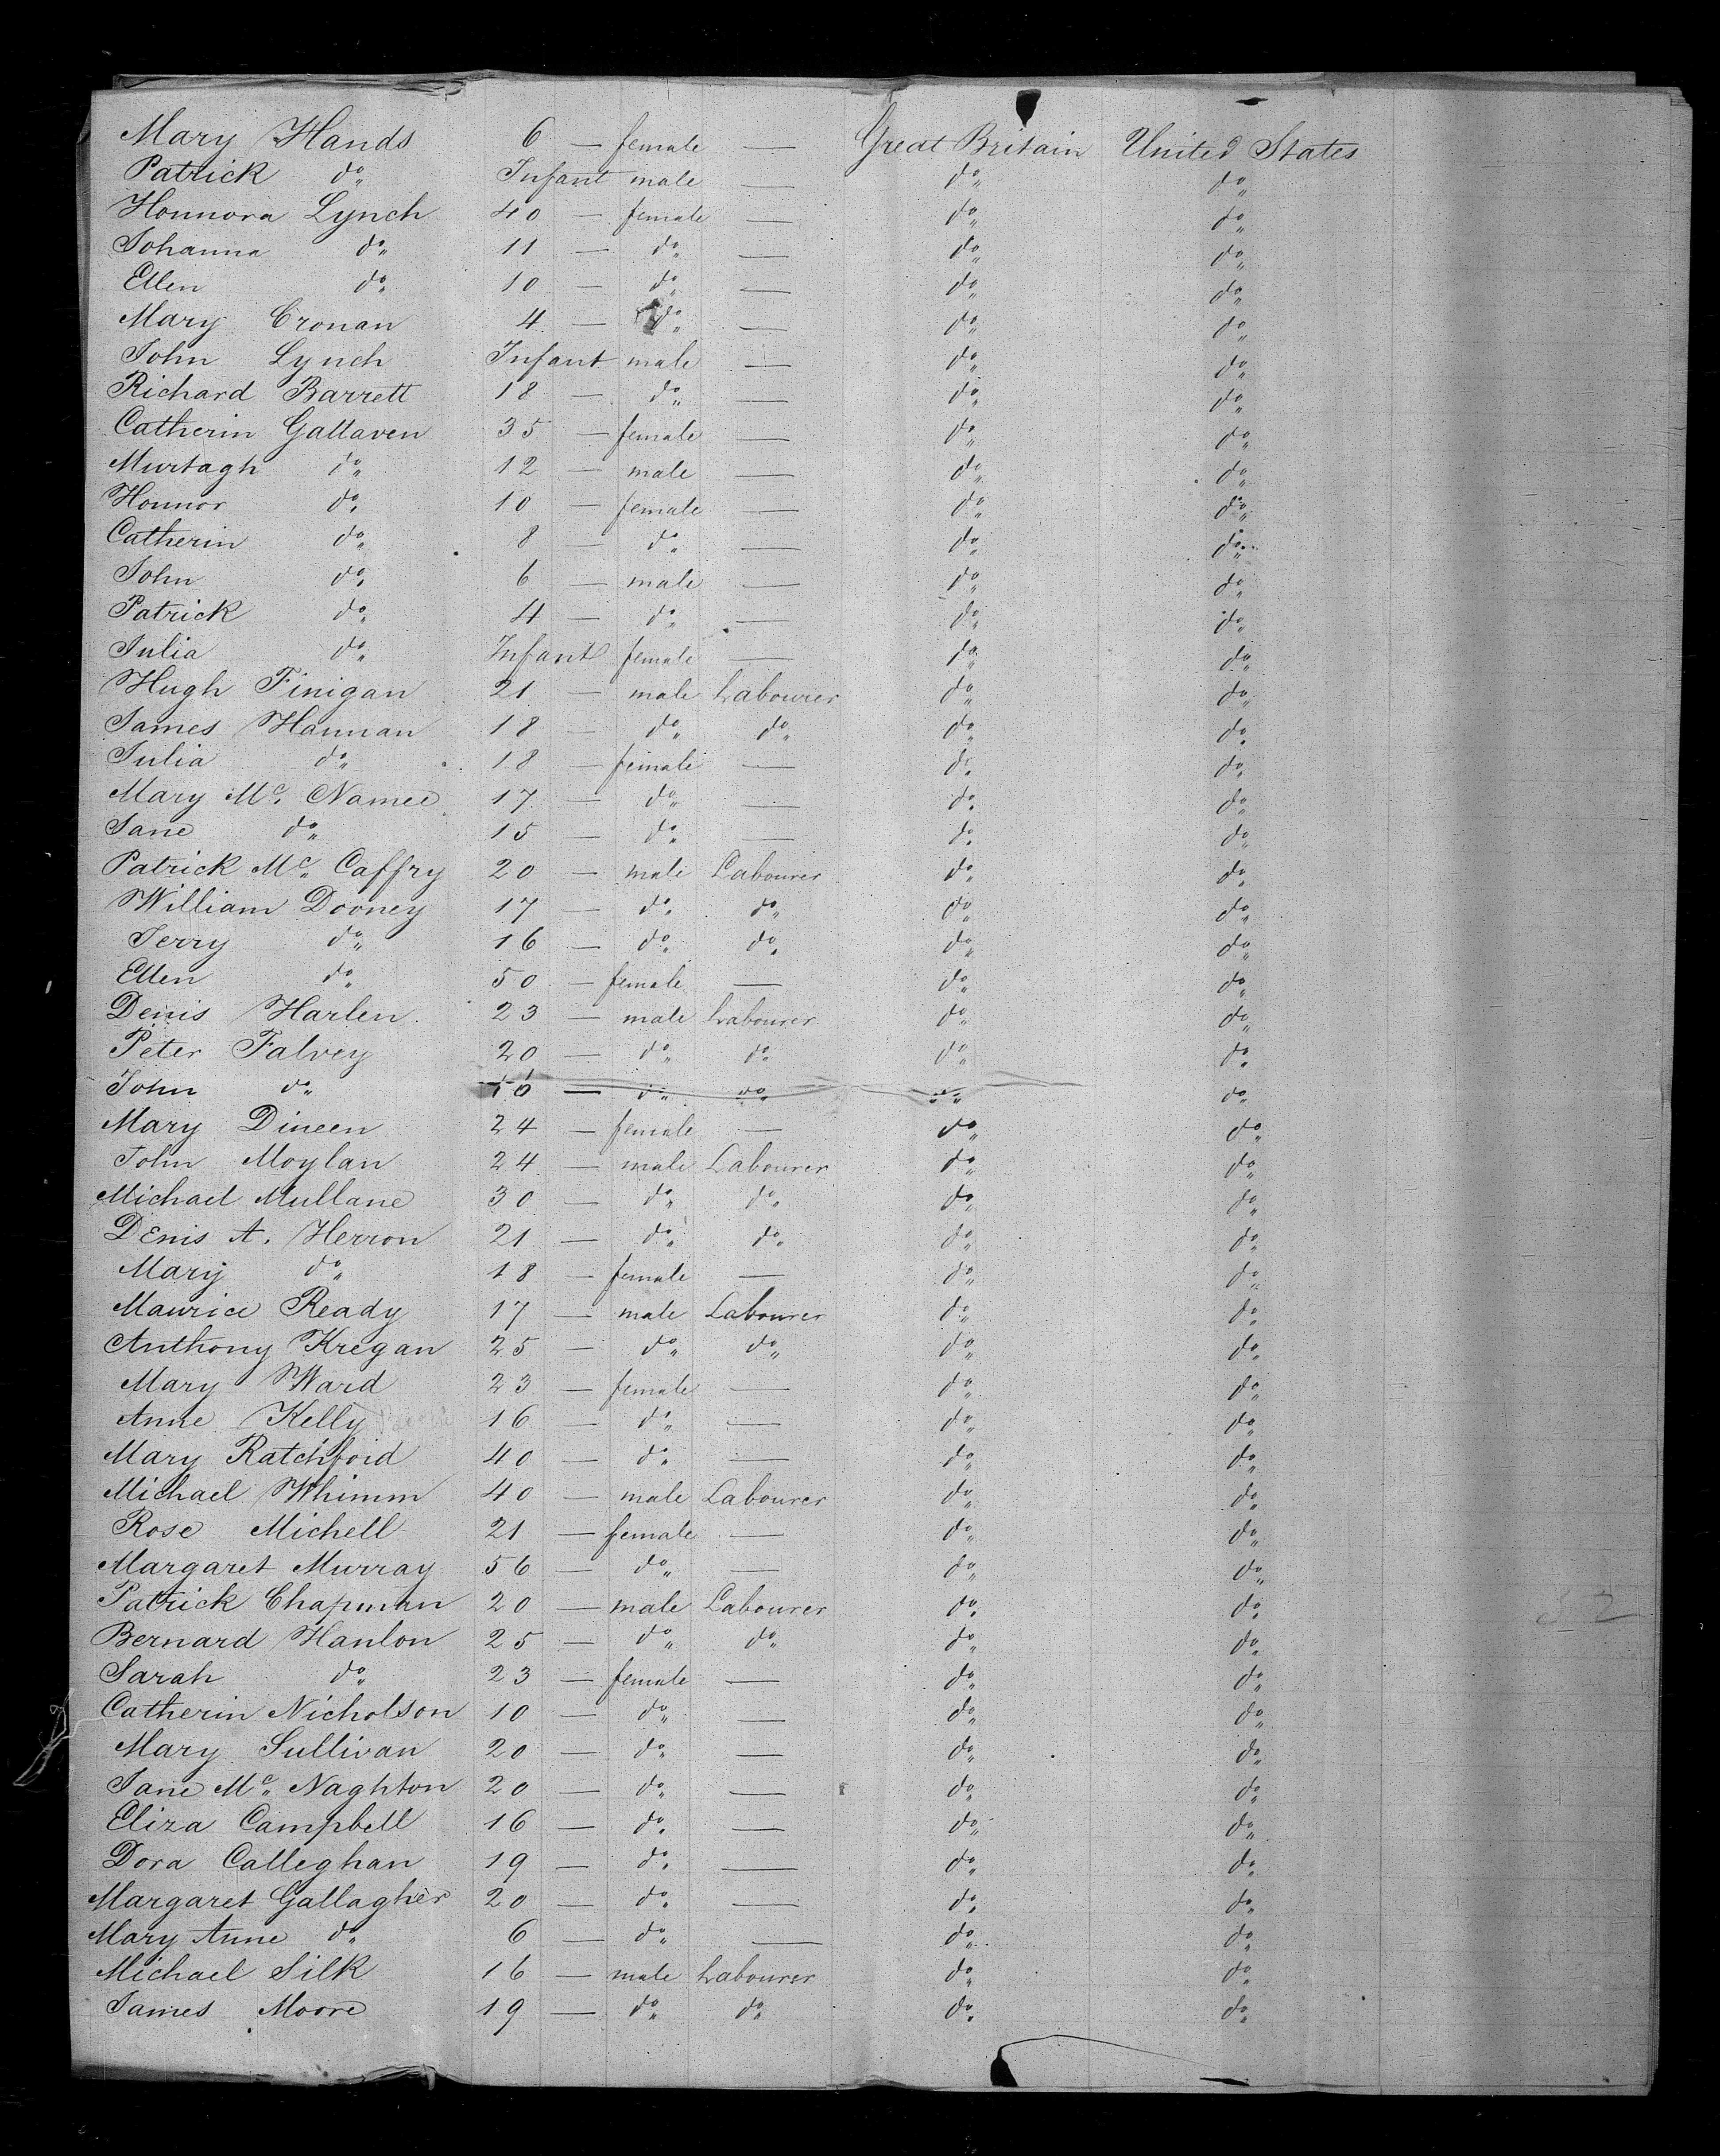 Mary Hands 6 — female — Great Britain United States
Patrick do Infant male — do do
Honnora Lynch 40 — female — do do
Johanna do 11 — do — do do
Ellen do 10 — do — do do
Mary Cronan 4 — do — do do
John Lynch Infant male — do do
Richard Barrett 18 — do — do do
Catherin Gallaven 35 — female — do do
Murtagh do 12 — male — do do
Honnor do 10 — female — do do
Catherin do 8 — do — do do
John do 6 — male — do do
Patrick do 4 — do — do do
Julia do Infant female — do do
Hugh Finigan 21 — male Labourer do do
James Hannan 18 — do do do do
Julia do 18 — female — do do
Mary Mc. Namee 17 — do — do do
Jane do 15 — do — do do
Patrick Mc. Caffry 20 — male Labourer do do
William Dooney 17 — do do do do
Jerry do 16 — do do do do
Ellen do 50 — female — do do
Denis Harlen 23 — male Labourer do do
Peter Falvey 20 — do do do do
John do — do do do do
Mary Dineen 24 — female — do do
John Moylan 24 — male Labourer do do
Michael Mullane 30 — do do do do
Denis A. Herron 21 — do do do do
Mary do 18 — female — do do
Maurice Ready 17 — male Labourer do do
Anthony Kregan 25 — do do do do
Mary Ward 23 — female — do do
Anne Kelly 16 — do — do do
Mary Ratchford 40 — do — do do
Michael Whimm 40 — male Labourer do do
Rose Michell 21 — female — do do
Margaret Murray 56 — do — do do
Patrick Chapman 20 — male Labourer do do
Bernard Hanlon 25 — do do do do
Sarah do 23 — female — do do
Catherin Nicholson 10 — do — do do
Mary Sullivan 20 — do — do do
Jane Mc. Naghton 20 — do — do do
Eliza Campbell 16 — do — do do
Dora Calleghan 19 — do — do do
Margaret Gallagher 20 — do — do do
Mary Anne do 6 — do — do do
Michael Silk 16 — male Labourer do do
James Moore 19 — do do do do